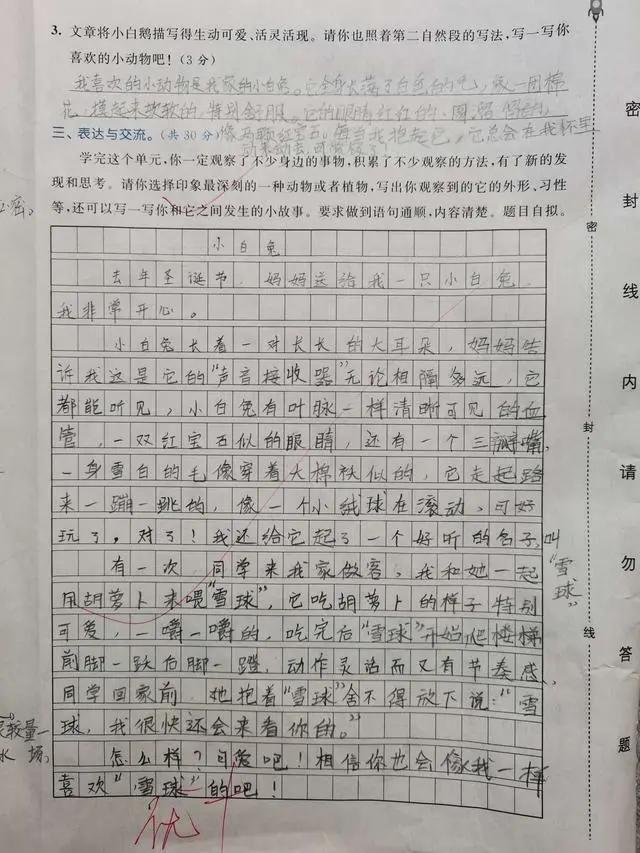 3. 文章将小白鹅描写得生动可爱、活灵活现。请你也照着第二自然段的写法，写一写你
喜欢的小动物吧！(3分)
我喜欢的小动物是我家的小白兔。它全身长满了白色的毛，像一团棉
花，摸起来软软的，特别舒服。它的眼睛红红的、圆溜溜的，
三、表达与交流。(共30分)
像两颗红宝石。每当我抱起它，它总会在我怀里
动来动去，可爱极了
学完这个单元，你一定观察了不少身边的事物，积累了不少观察的方法，有了新的发
现和思考。请你选择印象最深刻的一种动物或者植物，写出你观察到的它的外形、习性
等，还可以写一写你和它之间发生的小故事。要求做到语句通顺，内容清楚。题目自拟。
小白兔
去年圣诞节，妈妈送给我一只小白兔，
我非常开心。
小白兔长着一对长长的大耳朵，妈妈告
诉我这是它的"声音接收器"无论相隔多远，它
都能听见，小白兔有叶脉一样清晰可见的血
管，一双红宝石似的眼睛，还有一个三瓣嘴，
一身雪白的毛像穿着大棉袄似的，它走起路
来一蹦一跳的，像一个小绒球在滚动，可好
玩了，对了！我还给它起了一个好听的名字，叫
"雪球"
有一次，同学来我家做客，我和她一起
用胡萝卜来喂"雪球"，它吃胡萝卜的样子特别
可爱，一嚼一嚼的，吃完后"雪球"开始爬楼梯
前脚一跃后脚一蹬，动作灵活而又有节奏感，
同学回家前，她抱着"雪球"舍不得放下说："雪
球，我很快还会来看你的。"
怎么样？可爱吧！相信你也会像我一样
喜欢"雪球"的吧！
优
密
封
线
内
请
勿
答
题
密
封
线
密。
较量一
水场，